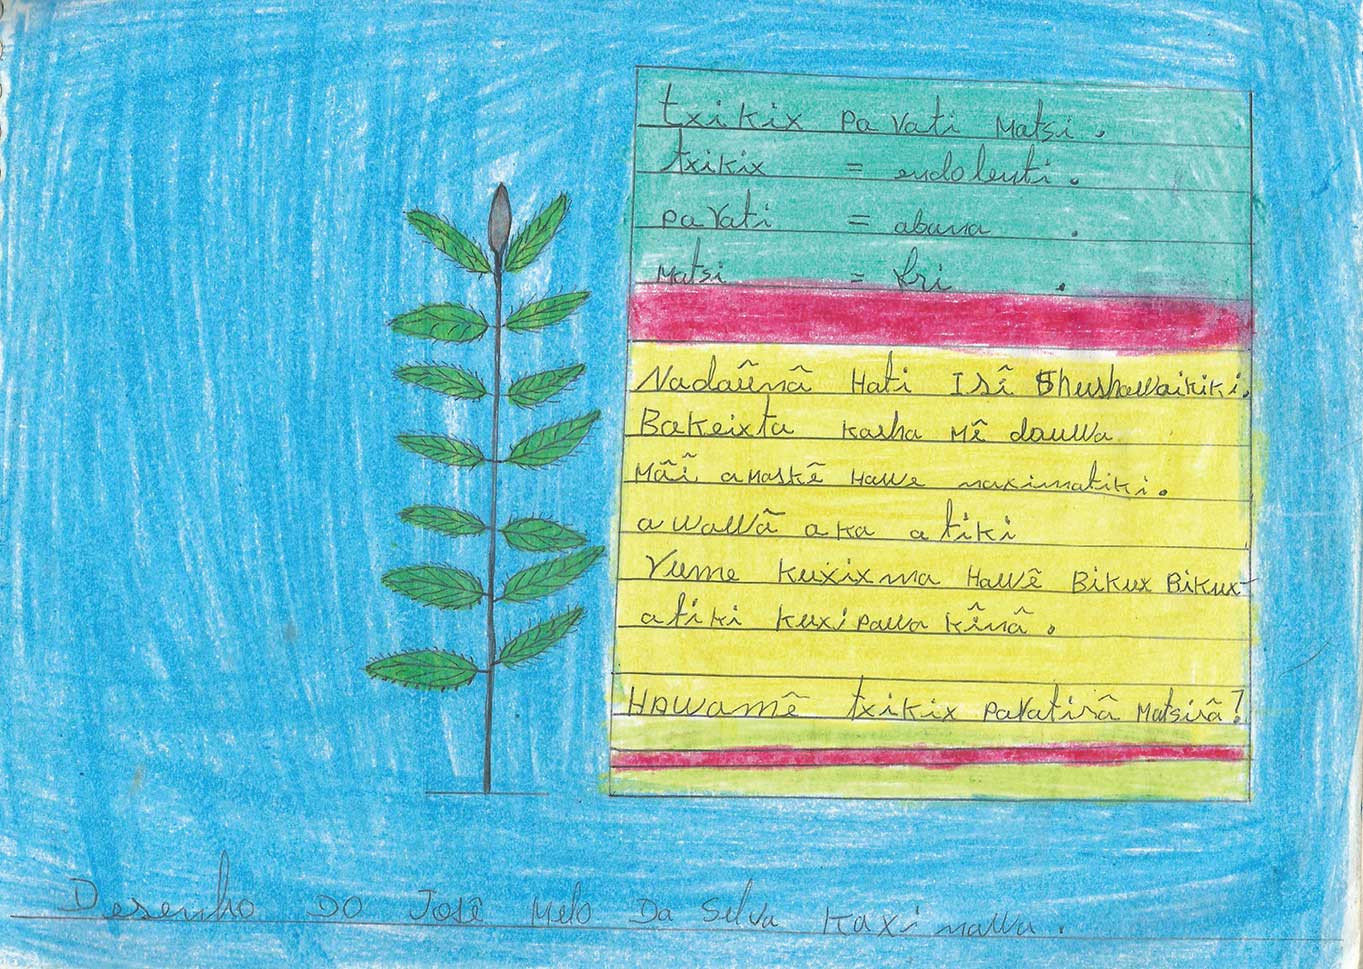 txikix pavati Matsi.
txikix = endolenti.
pavati = abana .
Matsi = fri .
Nadaũnã Hati Isĩ Shushawaikiki.
Bakeixta kasha Mê dauwa
Mãĩ amaskê Hawe naximatiki.
awawã aka atiki
Yume kuxixma Hawê Bikux Bikux
atiki kuxipawa kĩnã.
Hawamê txikix pavatirã Matsirã?
Desenho Do José Melo Da Selva Kaxi nawa.